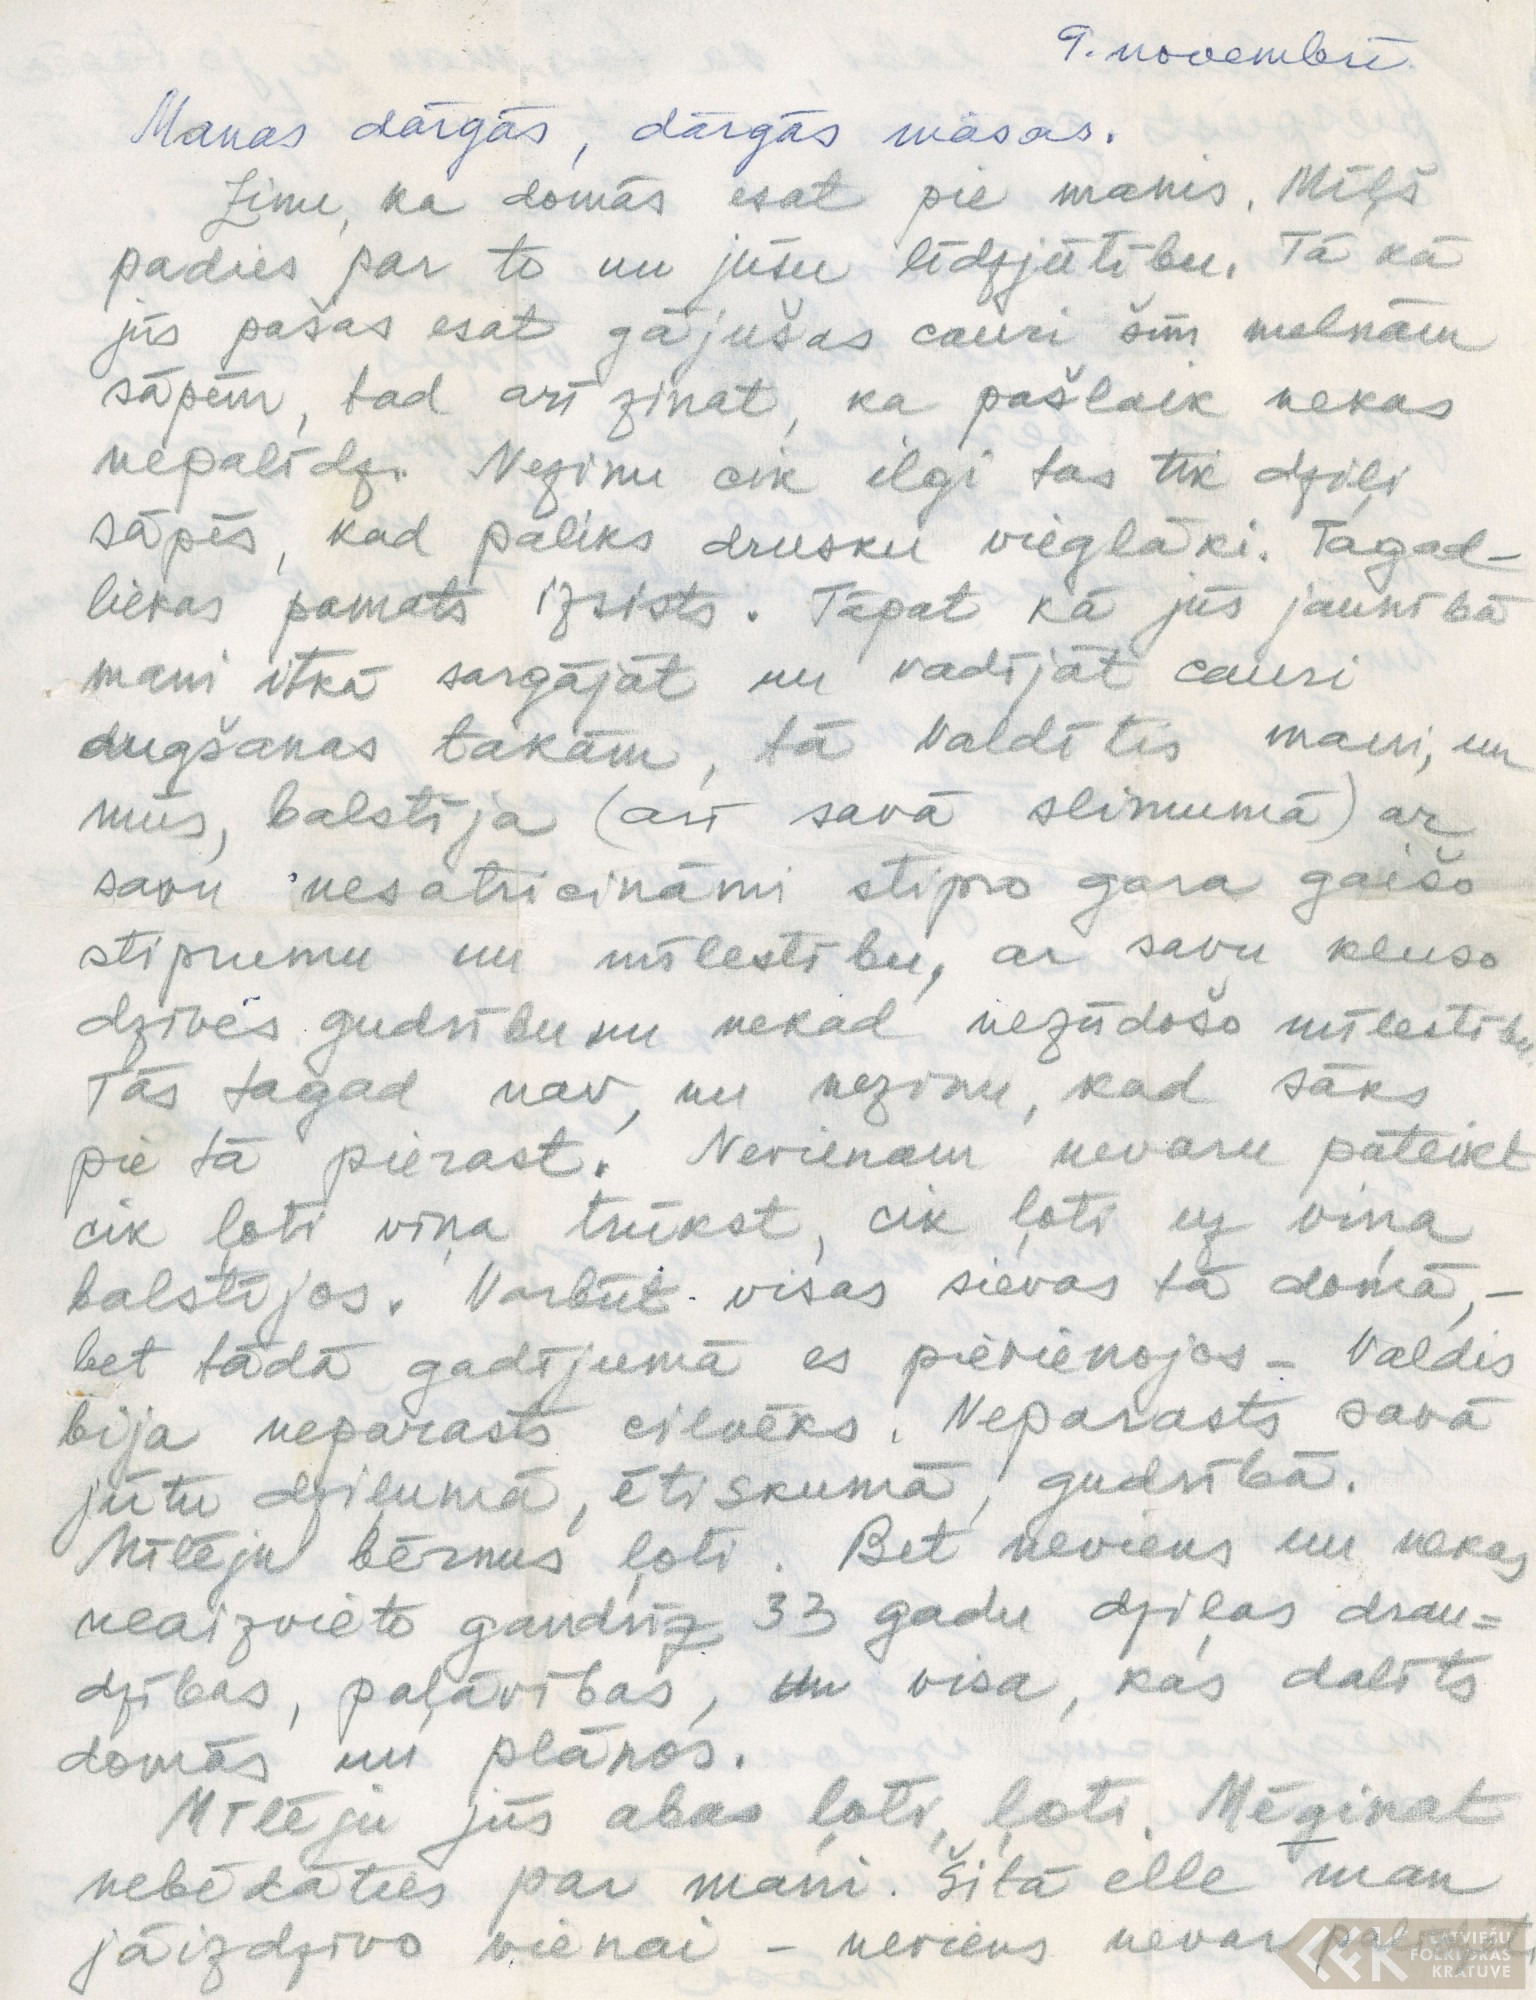 9. novembrī
Manas dārgās, dārgās māsas.
Zinu, ka domās esat pie manis. Mīļš
paldies par to un jūsu līdzjūtību. Tā kā
jūs pašas esat gājušas cauri šīm melnām
sāpēm, tad arī zinat, ka pašlaik nekas
nepalīdz. Nezinu cik ilgi tas tik dziļi
sāpēs, kad paliks drusku vieglāki. Tagad –
liekas pamats izsists. Tāpat kā jūs jaunībā
mani itkā sargājāt un vadījāt cauri
augšanas takām, tā Valdītis mani, un
mūs, balstīja (arī savā slimumā) ar
savu nesatricināmi stipro gara gaišo
stiprumu un mīlestību, ar savu kluso
dzīves gudrību un nekad nezūdošo mīlestību.
Tās tagad nav, un nezinu, kad sāks
pie tā pierast. Nevienam nevaru pateikt
cik ļoti viņa trūkst, cik ļoti uz viņa
balstījos. Varbūt visas sievas tā domā, –
bet tādā gadījumā es pievienojos – Valdis
bija neparasts cilvēks. Neparasts savā
jūtu dziļumā, ētiskumā, gudrībā.
Mīlēju bērnus ļoti. Bet neviens un nekas
neaizvieto gandrīz 33 gadu dziļas drau=
dzības, paļāvības, un visa, kas dalīts
domās un plānos.
Mīlēju jūs abas ļoti, ļoti. Mēģinat
nebēdāties par mani. Šitā elle man
jāizdzīvo vienai – neviens nevar palīdzēt,
LATVIEŠU
FOLKLORAS
KRĀTUVE